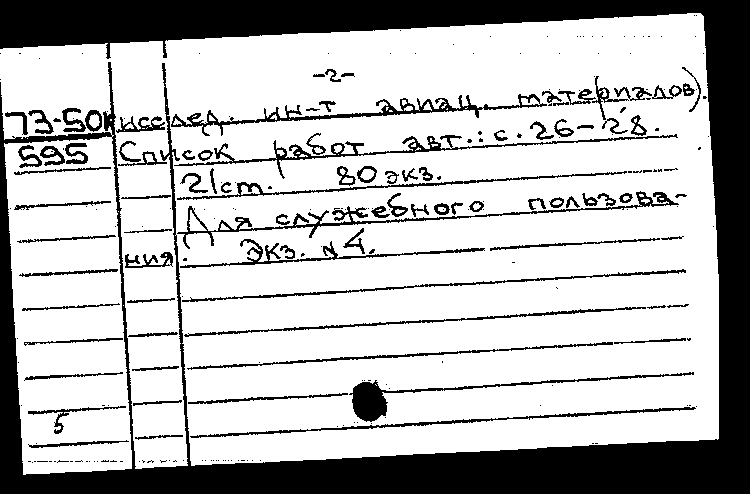 -2-
73-50к исслед. ин-т авиац. материалов).
595 Список работ авт.: с. 26-28.
21ст. 80 экз.
Для служебного пользова-
ния. Экз. № 4.
5